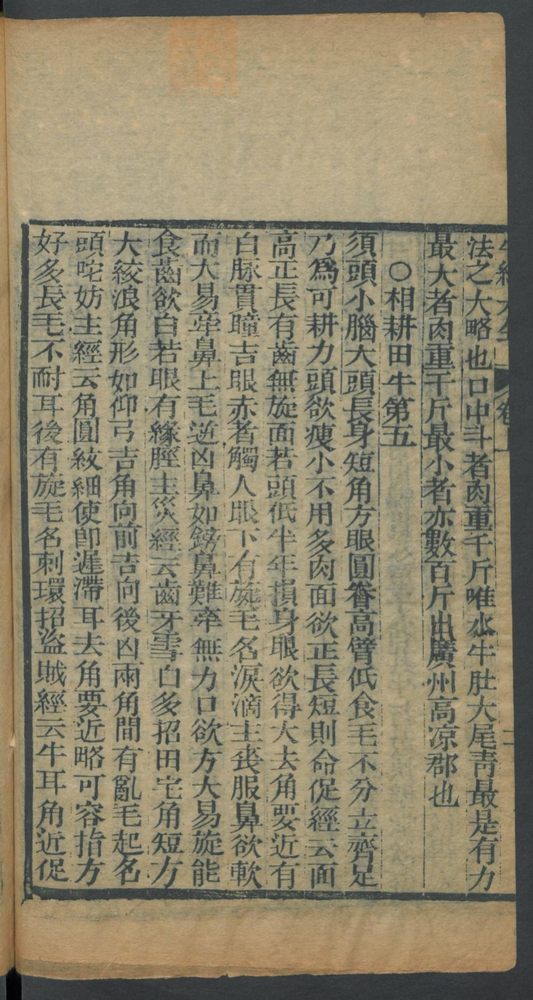 法之大略也口中斗者肉重千斤唯水牛肚大尾青最是有力
最大者肉重千斤最小者亦數百斤出廣州高凉郡也
○相耕田牛第五
須頭小腦大頭長身短角方眼圓脊高臀低食毛不分立齊足
乃為可耕力頭欲瘦小不用多肉面欲正長短則命促經云面
高正長有壽無旋面若頭低半年損身眼欲得大去角要近有
白脉貫瞳吉眼赤者觸人眼下有旋毛名淚滴主喪服鼻欲軟
而大易牽鼻上毛逆凶鼻如鏡鼻難牽無力口欲方大易旋能
食齒欲白若眼有緣脛主災經云齒牙雪白多招田宅角短方
大紋浪角形如仰弓吉角向前吉向後凶兩角間有亂毛起名
頭咤妨主經云角圓紋細使即遲滯耳去角要近略可容指方
好多長毛不耐耳後有旋毛名刺環招盜賊經云牛耳角近促